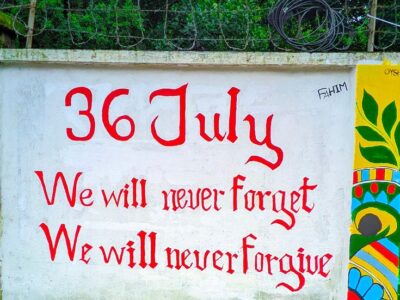 FAHIM
36 July
We will never forget
We will never forgive